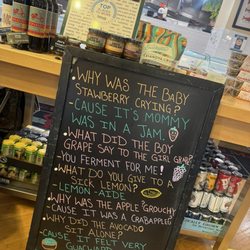 WHY WAS THE BABY
STAWBERRY CRYING?
-CAUSE IT'S MOMMY
WAS IN A JAM.
• WHAT DID THE BOY
GRAPE SAY TO THE GIRL GRAPE?
-YOU FERMENT FOR ME!
• WHAT DO YOU GIVE TO A
SICK LEMON?
-LEMON-AIDE
• WHY WAS THE APPLE GROUCHY
-CAUSE IT WAS A CRABAPPLE
• WHY DID THE AVOCADO
SIT ALONE?
-CAUSE IT FELT VERY